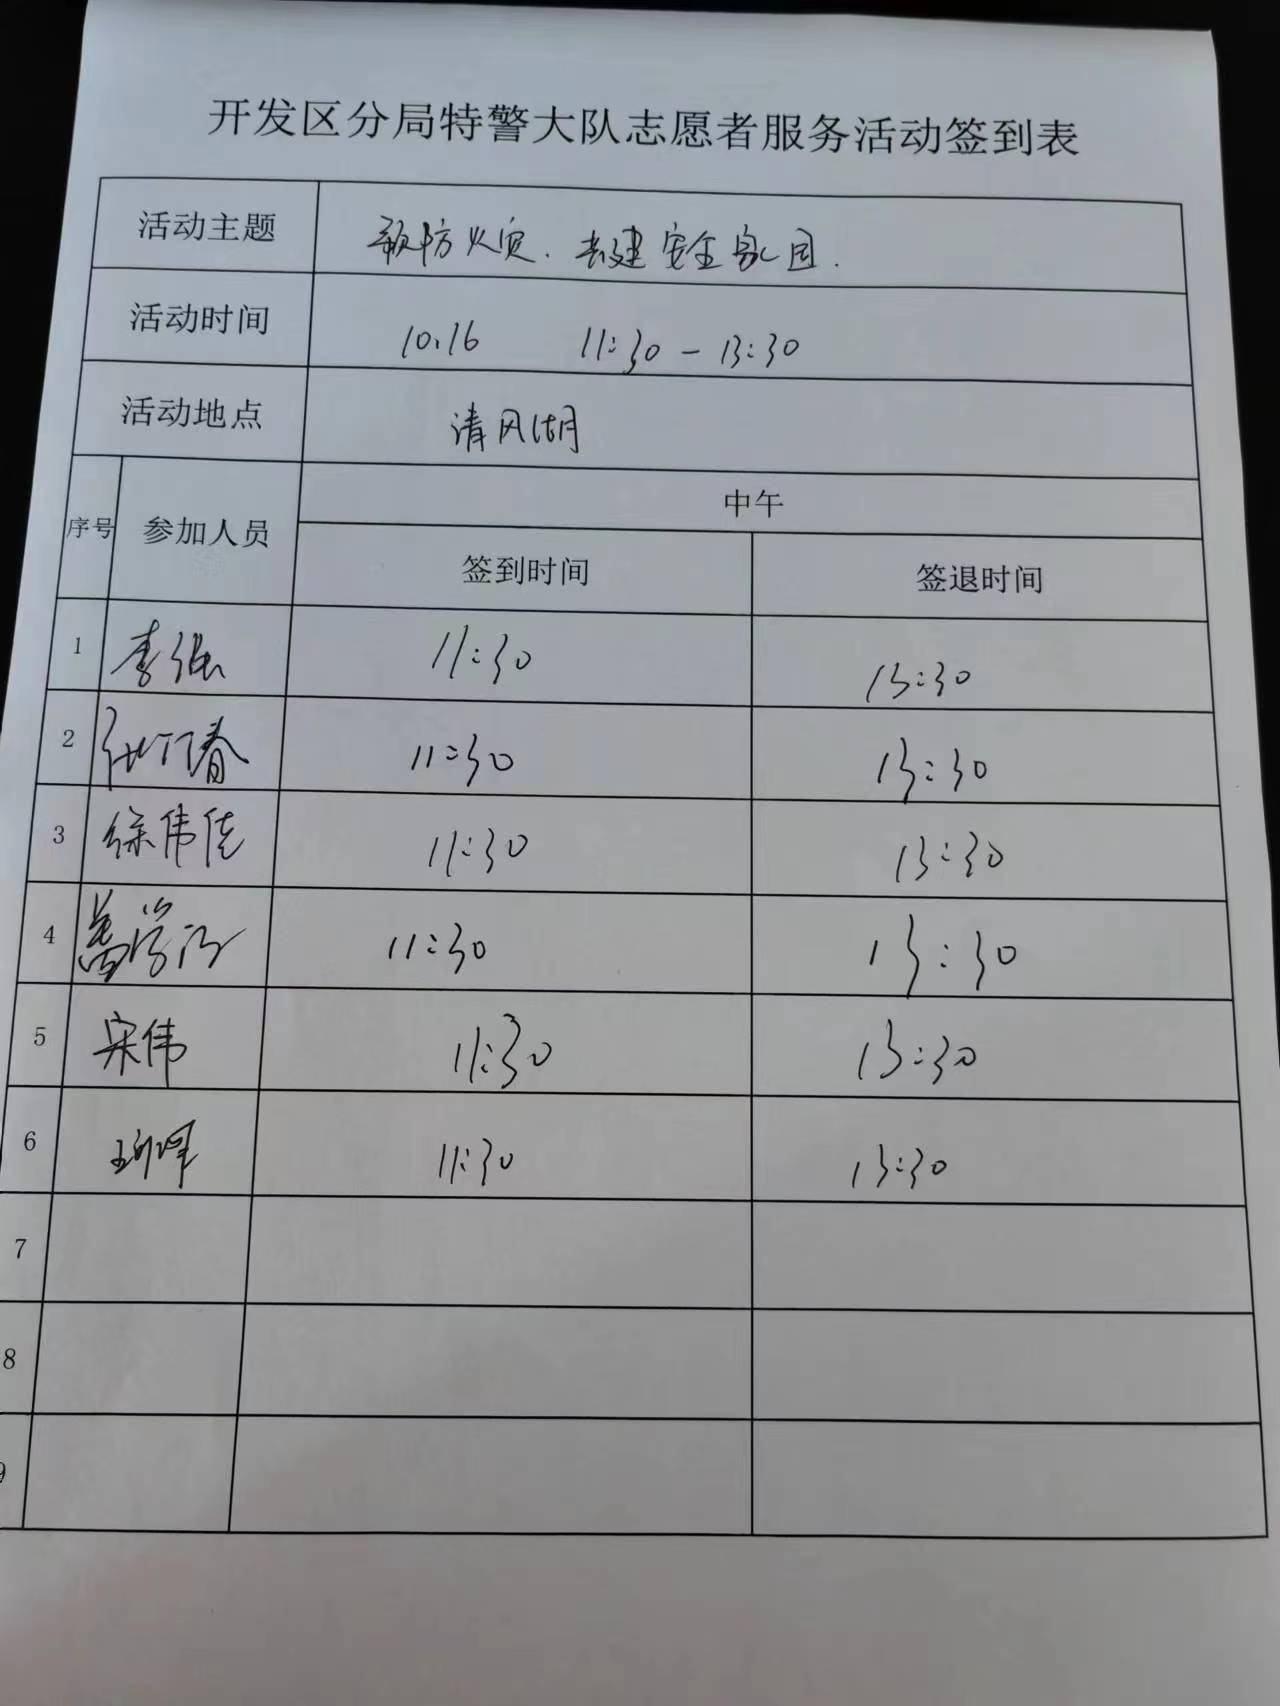 开发区分局特警大队志愿者服务活动签到表
活动主题 预防火灾.共建安全家园.
活动时间 10.16 11:30-13:30
活动地点 清风湖
序号 参加人员 中午
签到时间 签退时间
1 李强 11:30 13:30
2 11:30 13:30
3 徐伟佳 11:30 13:30
4 11:30 13:30
5 宋伟 11:30 13:30
6 11:30 13:30
7
8
9